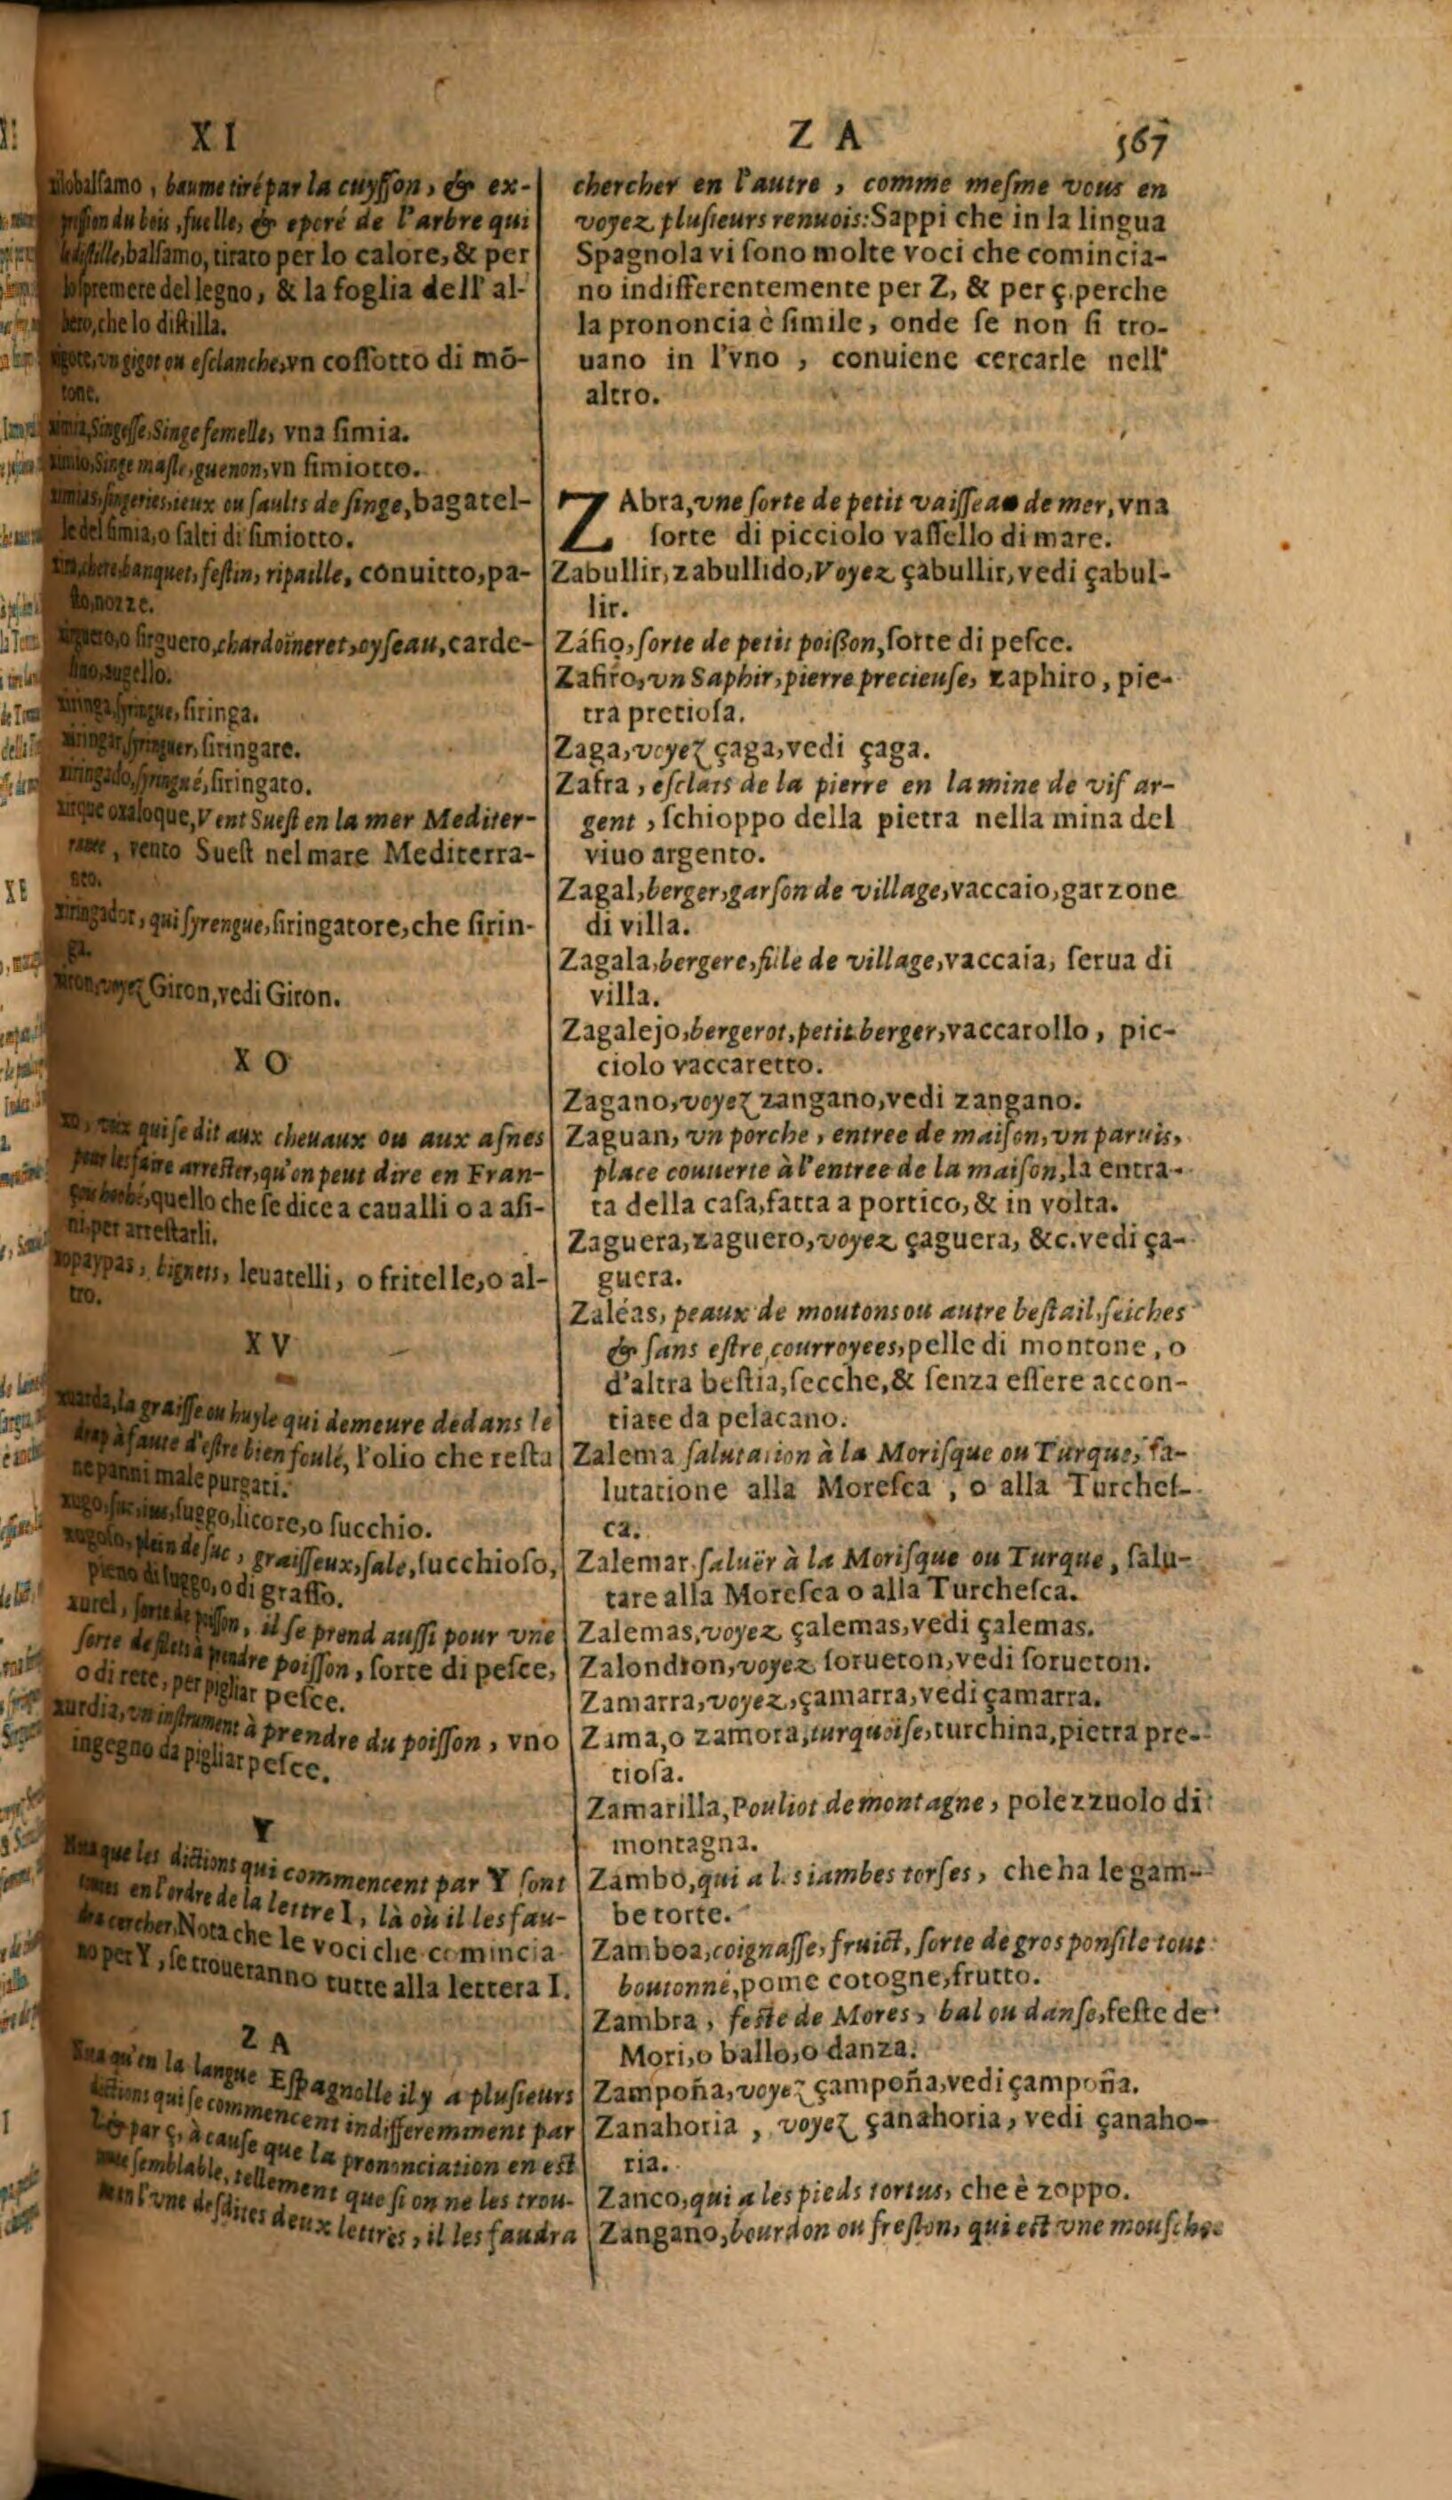 XI
ZA 567
xilobalſamo, baume tiré par la cuyſſon, & ex-
preſſion du bois, fuelle, & eperé de l'arbre qui
le diſtille, balſamo, tirato per lo calore, & per
lo ſpremere del legno, & la foglia dell' al-
bero, che lo diſtilla.
xigote, vn gigot ou eſclanche, vn coſſotto di mō-
tone.
ximia, Singeſſe, Singe femelle, vna ſimia.
ximio, Singe maſle, guenon, vn ſimiotto.
ximias, ſingeries, ieux ou ſaults de ſinge, bagatel-
le del ſimia, o ſalti di ſimiotto.
xira, chere, banquet, feſtin, ripaille, conuitto, pa-
ſto, nozze.
xirguero, o ſirguero, chardoïneret, oyſeau, carde-
lino, augello.
xiringa, ſyringue, ſiringa.
xiringar, ſyringuer, ſiringare.
xiringado, ſyringué, ſiringato.
xirque oxaloque, Vent Sueſt en la mer Mediter-
ranee, vento Sueſt nel mare Mediterra-
neo.
xiringador, qui ſyrengue, ſiringatore, che ſirin-
ga.
xiron, voyez Giron, vedi Giron.
XO
xo, voix qui ſe dit aux cheuaux ou aux aſnes
pour les faire arreſter, qu'on peut dire en Fran-
quello che ſe dice a caualli o a aſi-
ni, per arreſtarli.
xopaypas, bignets, leuatelli, o fritelle, o al-
tro.
XV
xuarda, la graiſſe ou huyle qui demeure dedans le
drap à faute d'eſtre bien foulé, l'olio che reſta
ne panni male purgati.
xugo, ſuc, ius, ſuggo, licore, o ſucchio.
xugoſo, plein de ſuc, graiſſeux, ſale, ſucchioſo,
pieno di ſuggo, o di graſſo.
xurel, ſorte de poiſſon, il ſe prend auſſi pour vne
ſorte de filets à prendre poiſſon, ſorte di peſce,
o di rete, per pigliar peſce.
xurdia, vn inſtrument à prendre du poiſſon, vno
ingegno da pigliar peſce.
Y
Nota que les dictions qui commencent par Y ſont
toutes en l'ordre de la lettre I, là où il les fau-
dra cercher, Nota che le voci che comincia
no per Y, ſe troueranno tutte alla lettera I.
ZA
Nota qu'en la langue Eſpagnolle il y a pluſieurs
dictions qui ſe commencent indifferemment par
Z & par ç, à cauſe que la prononciation en eſt
ſemblable, tellement que ſi on ne les trou-
l'vne deſdites deux lettres, il les faudra
chercher en l'autre, comme meſme vous en
voyez pluſieurs renuois: Sappi che in la lingua
Spagnola vi ſono molte voci che comincia-
no indifferentemente per Z, & per ç. perche
la prononcia è ſimile, onde ſe non ſi tro-
uano in l'vno, conuiene cercarle nell'
altro.
ZAbra, vne ſorte de petit vaiſſeau de mer, vna
ſorte di picciolo vaſſello di mare.
Zabullir, zabullido, Voyez çabullir, vedi çabul-
lir.
Záfio, ſorte de petit poiſſon, ſorte di peſce.
Zafiro, vn Saphir, pierre precieuſe, zaphiro, pie-
tra pretioſa.
Zaga, voyez çaga, vedi çaga.
Zafra, eſclats de la pierre en la mine de vif ar-
gent, ſchioppo della pietra nella mina del
viuo argento.
Zagal, berger, garſon de village, vaccaio, garzone
di villa.
Zagala, bergere, fille de village, vaccaia, ſerua di
villa.
Zagalejo, bergerot, petit berger, vaccarollo, pic-
ciolo vaccaretto.
Zagano, voyez zangano, vedi zangano.
Zaguan, vn porche, entree de maiſon, vn paruis,
place couuerte à l'entree de la maiſon, la entra-
ta della caſa, fatta a portico, & in volta.
Zaguera, zaguero, voyez çaguera, &c. vedi ça-
guera.
Zaléas, peaux de moutons ou autre beſtail, ſeiches
& ſans eſtre courroyees, pelle di montone, o
d'altra beſtia, ſecche, & ſenza eſſere accon-
tiate da pelacano.
Zalema ſalutation à la Moriſque ou Turque, ſa-
lutatione alla Moreſca, o alla Turcheſ-
ca.
Zalemar ſaluër à la Moriſque ou Turque, ſalu-
tare alla Moreſca o alla Turcheſca.
Zalemas, voyez çalemas, vedi çalemas.
Zalondron, voyez ſorueton, vedi ſorueton.
Zamarra, voyez, çamarra, vedi çamarra.
Zama, o zamora, turquoiſe, turchina, pietra pre-
tioſa.
Zamarilla, Pouliot de montagne, polezzuolo di
montagna.
Zambo, qui a les iambes torſes, che ha le gam-
be torte.
Zamboa, coignaſſe, fruict, ſorte de gros ponſile tout
boutonné, pome cotogne, frutto.
Zambra, feſte de Mores, bal ou danſe, feſte de
Mori, o ballo, o danza.
Zampoña, voyez çampoña, vedi çampoña.
Zanahoria, voyez çanahoria, vedi çanaho-
ria.
Zanco, qui a les pieds tortus, che è zoppo.
Zangano, bourdon ou freſlon, qui eſt vne mouſche